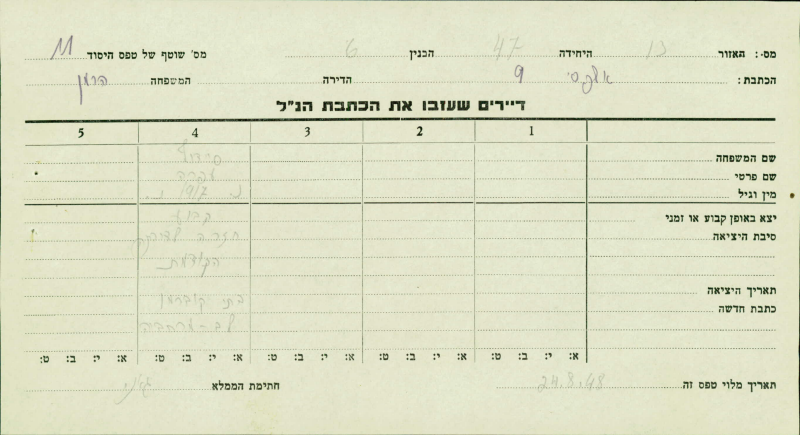 מס׳: האזור 13 היחידה 47 הבנין 6 מס׳ שוטף של טפס היסוד 11
הכתבת: 9 הדירה המשפחה הרמן
דיירים שעזבו את הכתבת הנ"ל
1 2 3 4 5
שם המשפחה
שם פרטי
מין וגיל
יצא באופן קבוע או זמני קבוע
סיבת היציאה חזרה לדירתה
הקודמת
תאריך היציאה
כתבת חדשה
א: י: ב: ט: א: י: ב: ט: א: י: ב: ט: א: י: ב: ט: א: י: ב: ט:
תאריך מלוי טפס זה 24.8.48 חתימת הממלא